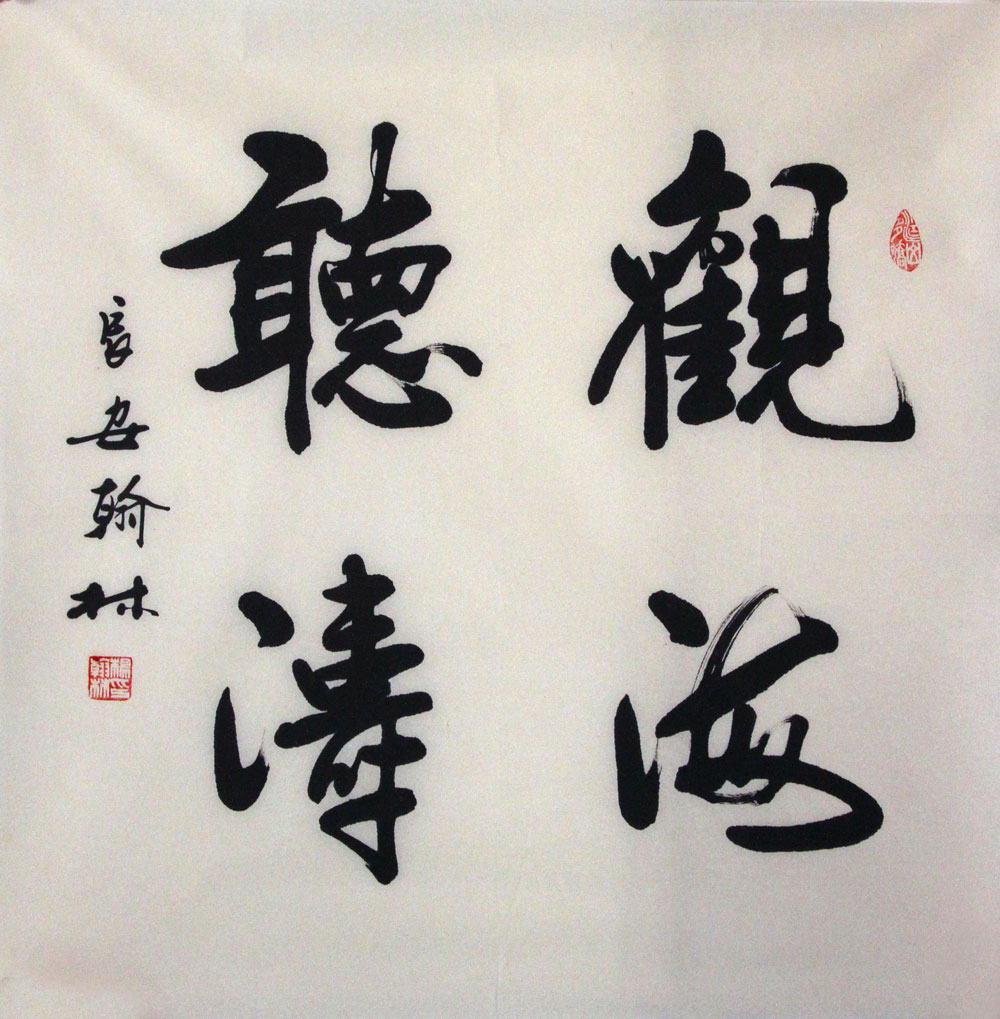 觀海
聽濤
長安翰林